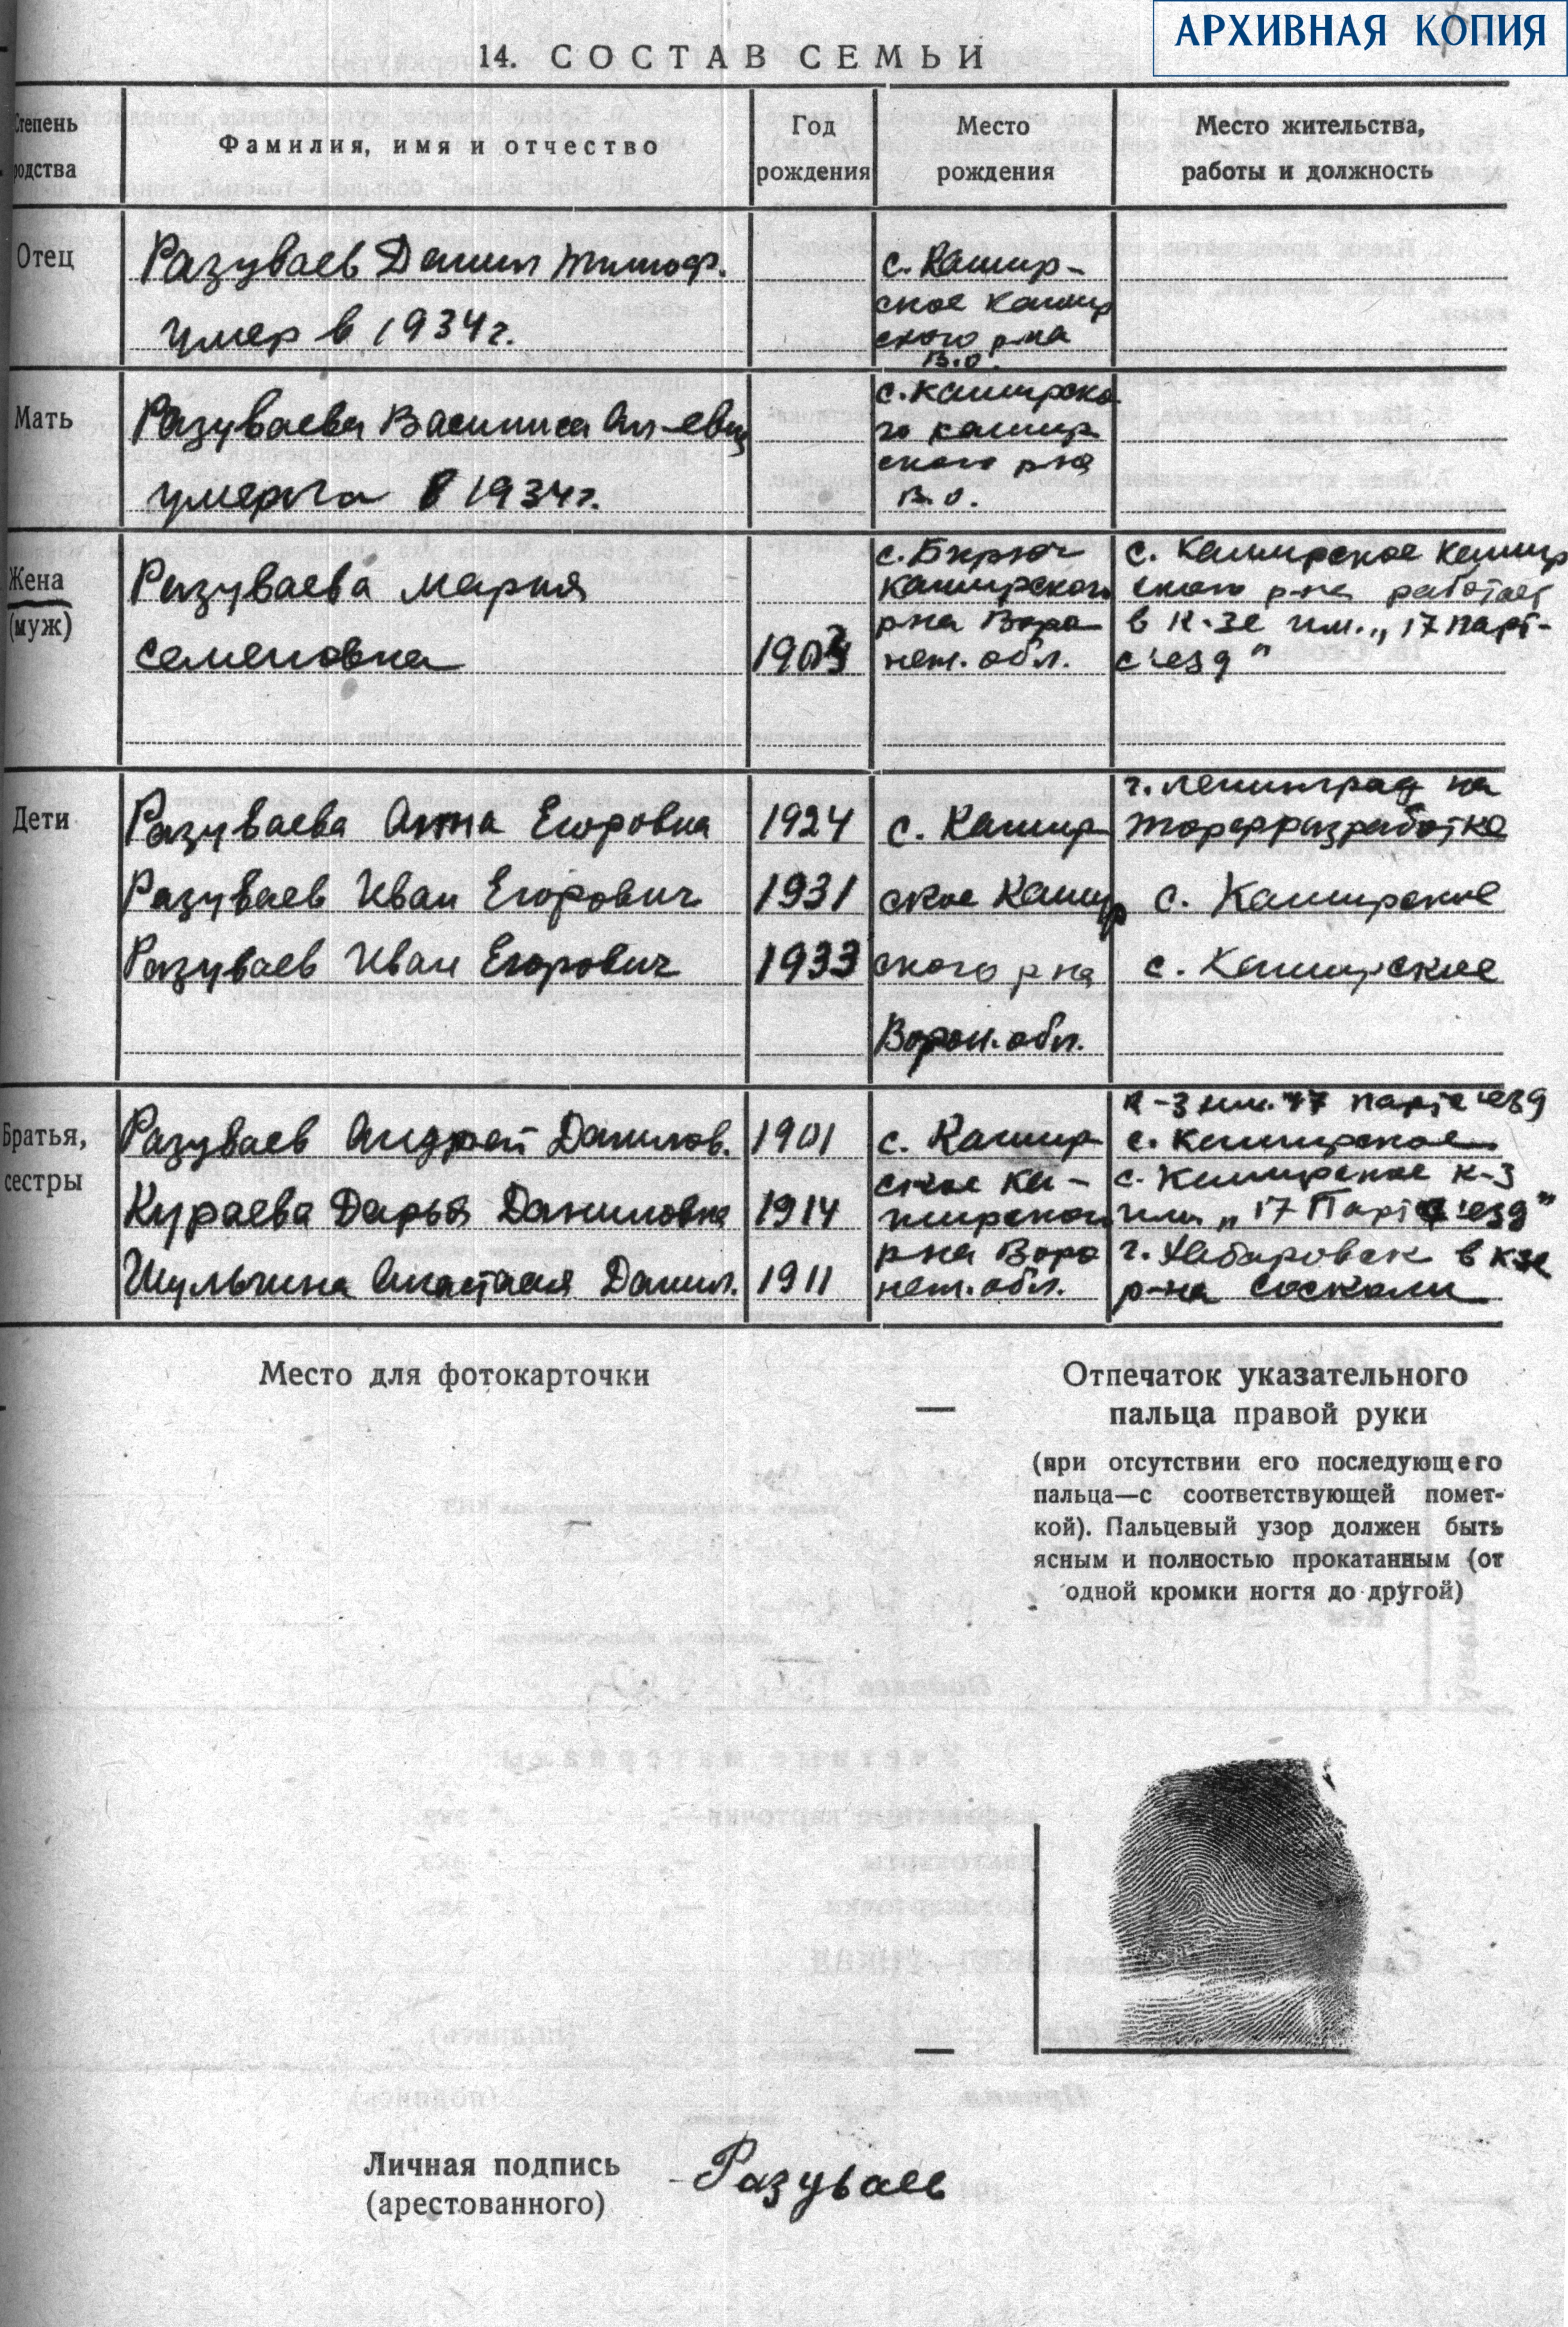 АРХИВНАЯ КОПИЯ
14. СОСТАВ СЕМЬИ
Степень родства
Фамилия, имя и отчество
Год рождения
Место рождения
Место жительства, работы и должность
Отец
Разуваев Данил Тимоф.
умер в 1934 г.
с. Кашир-
ское Кашир
ского р-на
В.О.
Мать
Разуваева Василиса
умерла в 1934 г.
с. Каширско
го кашир
ского р-на
В.О.
Жена
(муж)
Разуваева Мария
Семеновна
1903
с. Бирюч
Каширского
р-на Воро
неж. обл.
с. Каширское Кашир
ского р-на работает
в к-зе им. „17 парт-
с'езд"
Дети
Разуваева Анна Егоровна
1924
с. Кашир
г. Ленинград на
торфразработке
Разуваев Иван Егорович
1931
ское Кашир
с. Каширское
Разуваев Иван Егорович
1933
ского р-на
с. Каширское
Ворон. обл.
Братья,
сестры
Разуваев Андрей Данилов.
1901
с. Кашир
к-з им. 17 партс'езд
с. Каширское
Кураева Дарья Даниловна
1914
ское Ка-
ширского
с. Каширское к-з
им „17 Партс'езд"
Шульгина Анастасия Данил.
1911
р-на Воро
неж. обл.
г. Хабаровск в кзе
р-на
Место для фотокарточки
Отпечаток указательного
пальца правой руки
(при отсутствии его последующего
пальца—с соответствующей помет-
кой). Пальцевый узор должен быть
ясным и полностью прокатанным (от
одной кромки ногтя до другой)
Личная подпись
(арестованного)
Разуваев